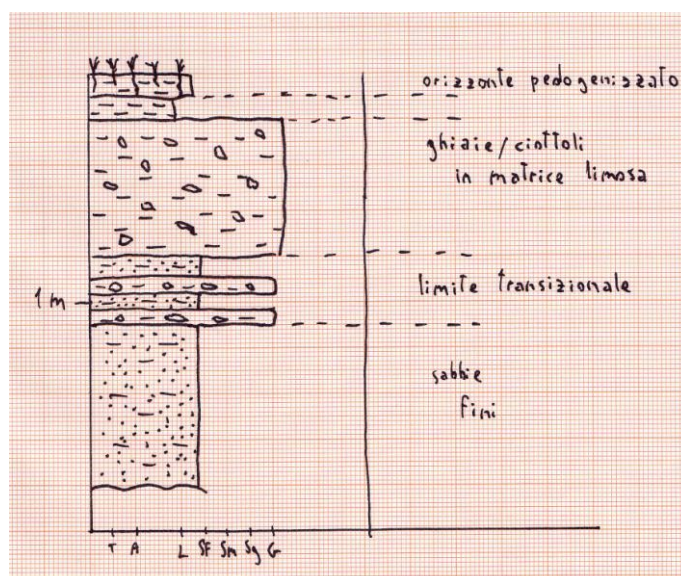 orizzonte pedogenizzato
ghiaie/ciottoli
in matrice limosa
1m
limite transizionale
sabbie
fini
T A L SF Sm Sg G